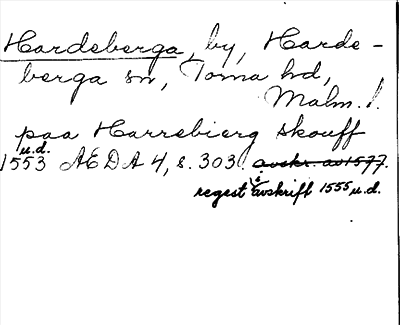 Hardeberga, by, Harde-
berga sn, Torna hd,
Malm. l.
paa Harrebierg skouff
u.d.
1553 AEDA 4, s. 303. avskr. av 1577.
regest i avskrift 1555 u.d.